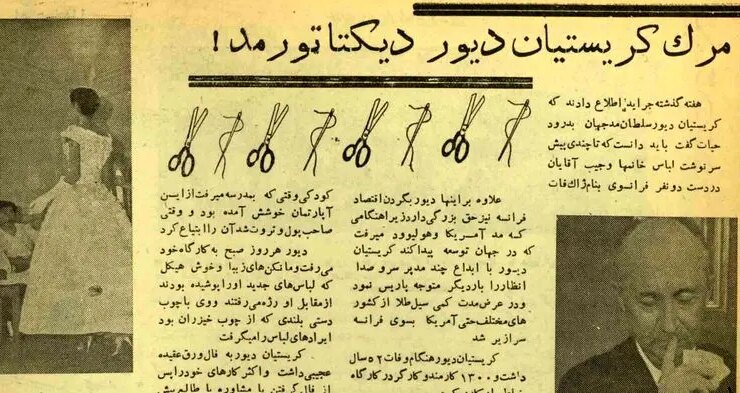 مرك كريستيان ديور ديكتاتور مد!
هفته گذشته جرايد اطلاع دادند كه
كريستيان ديور سلطان مد جهان بدرود
حيات گفت بايد دانست كه تا چندى پيش
سرنوشت لباس خانمها وجيب آقايان
در دست دو نفر فرانسوى بنام ژاك فات
علاوه براينها ديور بگردن اقتصاد
فرانسه نيز حق بزرگى دارد زيرا هنگامى
كه مد آمريكا و هوليوود ميرفت
كه در جهان توسعه پيدا كند كريستيان
ديور با ابداع چند مد پر سر و صدا
انظار را بار ديگر متوجه پاريس نمود
و در عرض مدت كمى سيل طلا از كشور
هاى مختلف حتى آمريكا بسوى فرانسه
سرازير شد
كريستيان ديور هنگام وفات ۵۲ سال
داشت و ۱۳۰۰ كارمند و كارگر در كارگاه
كودكى وقتى كه بمدرسه ميرفت از اين
آپارتمان خوشش آمده بود و وقتى
صاحب پول و ثروت شد آن را ابتياع كرد
ديور هر روز صبح به كارگاه خود
مى رفت و مانكن هاى زيبا و خوش هيكل
كه لباس هاى جديد او را پوشيده بودند
از مقابل او رژه مى رفتند و وى با چوب
دستى بلندى كه از چوب خيزران بود
ايرادهاى لباس را ميگرفت
كريستيان ديور به فال ورق عقيده
عجيبى داشت و اكثر كارهاى خود را پس
از فال گرفتن يا مشاوره با طالع بين